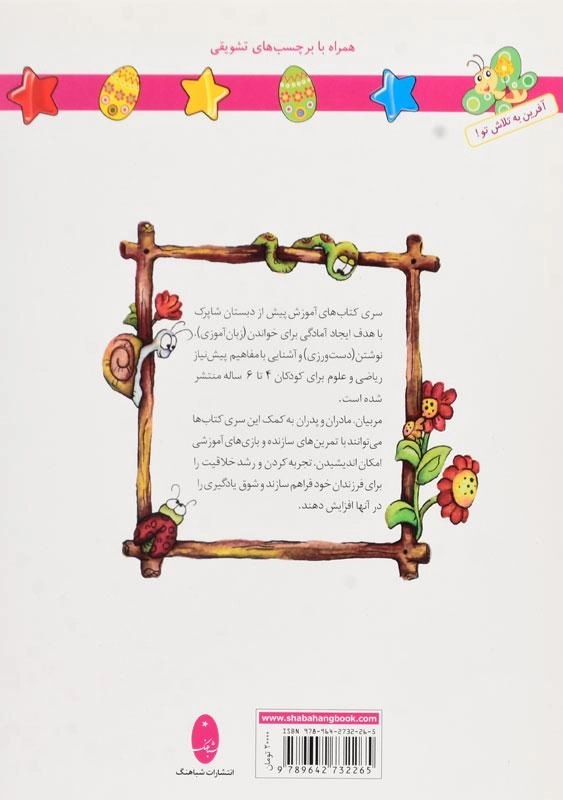 همراه با برچسب‌های تشویقی
آفرین به تلاش تو!
سری کتاب‌های آموزش پیش از دبستان شاپرک
با هدف ایجاد آمادگی برای خواندن (زبان‌آموزی)،
نوشتن(دست‌ورزی) و آشنایی با مفاهیم پیش‌نیاز
ریاضی و علوم برای کودکان ۴ تا ۶ ساله منتشر
شده است.
مربیان، مادران و پدران به کمک این سری کتاب‌ها
می‌توانند با تمرین‌های سازنده و بازی‌های آموزشی
امکان اندیشیدن، تجربه کردن و رشد خلاقیت را
برای فرزندان خود فراهم سازند و شوق یادگیری را
در آنها افزایش دهند.
www.shabahangbook.com
ISBN 978-964-2732-26-5
9 789642 732265
۲۰۰۰۰ تومان
شباهنگ
انتشارات شباهنگ